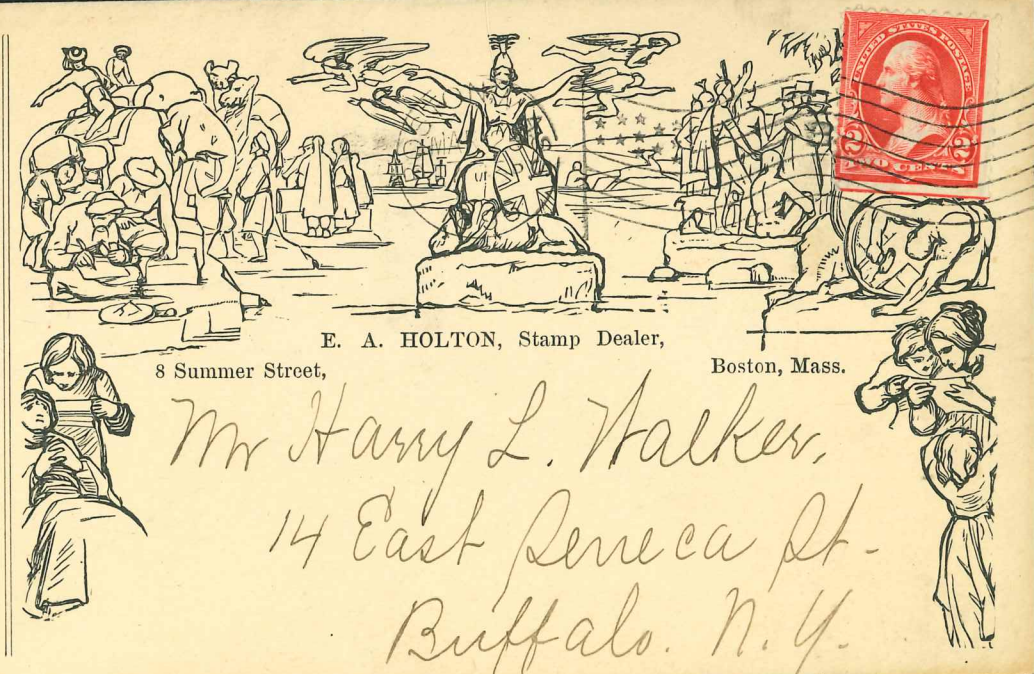 UNITED STATES POSTAGE
2 2
TWO CENTS
E. A. HOLTON, Stamp Dealer,
8 Summer Street,
Boston, Mass.
Mr Harry L. Walker,
14 East Seneca St-
Buffalo. N. Y.